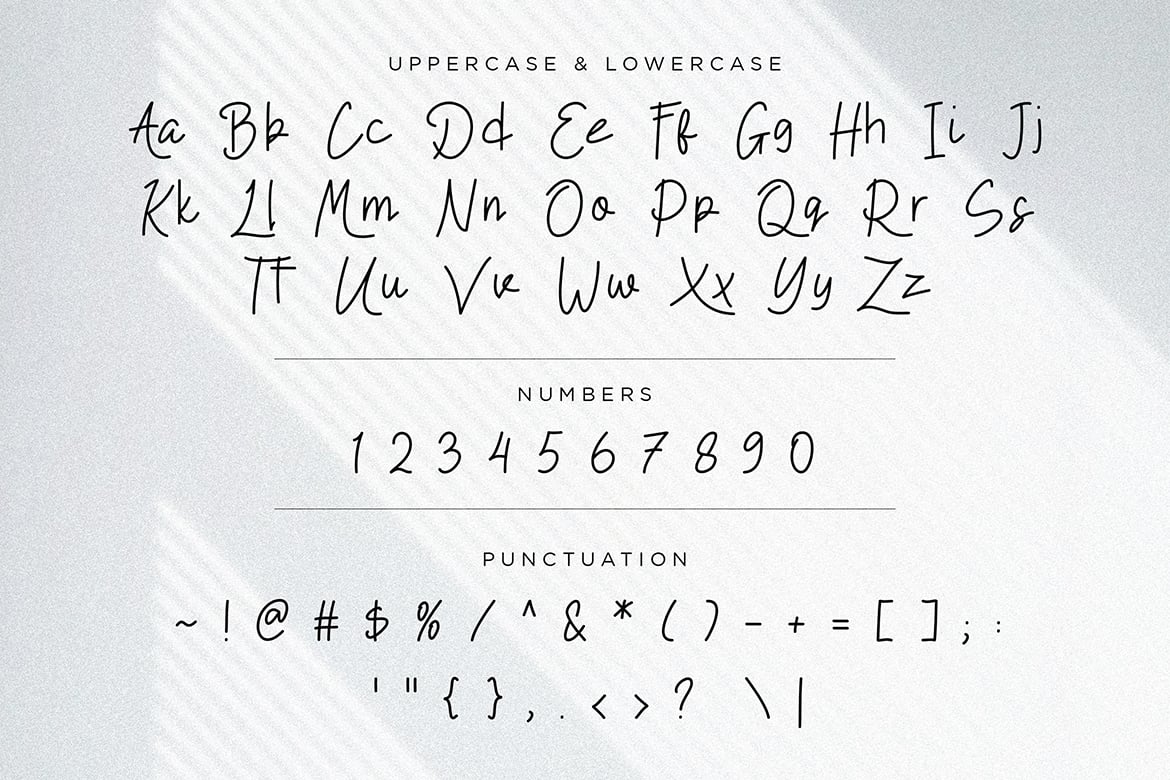 UPPERCASE & LOWERCASE
Aa Bb Cc Dd Ee Ff Gg Hh Ii Jj
Kk Ll Mm Nn Oo Pp Qq Rr Ss
Tt Uu Vv Ww Xx Yy Zz
NUMBERS
1 2 3 4 5 6 7 8 9 0
PUNCTUATION
~ ! @ # $ % / ^ & * ( ) - + = [ ] ; :
' " { } , . < > ? \ |